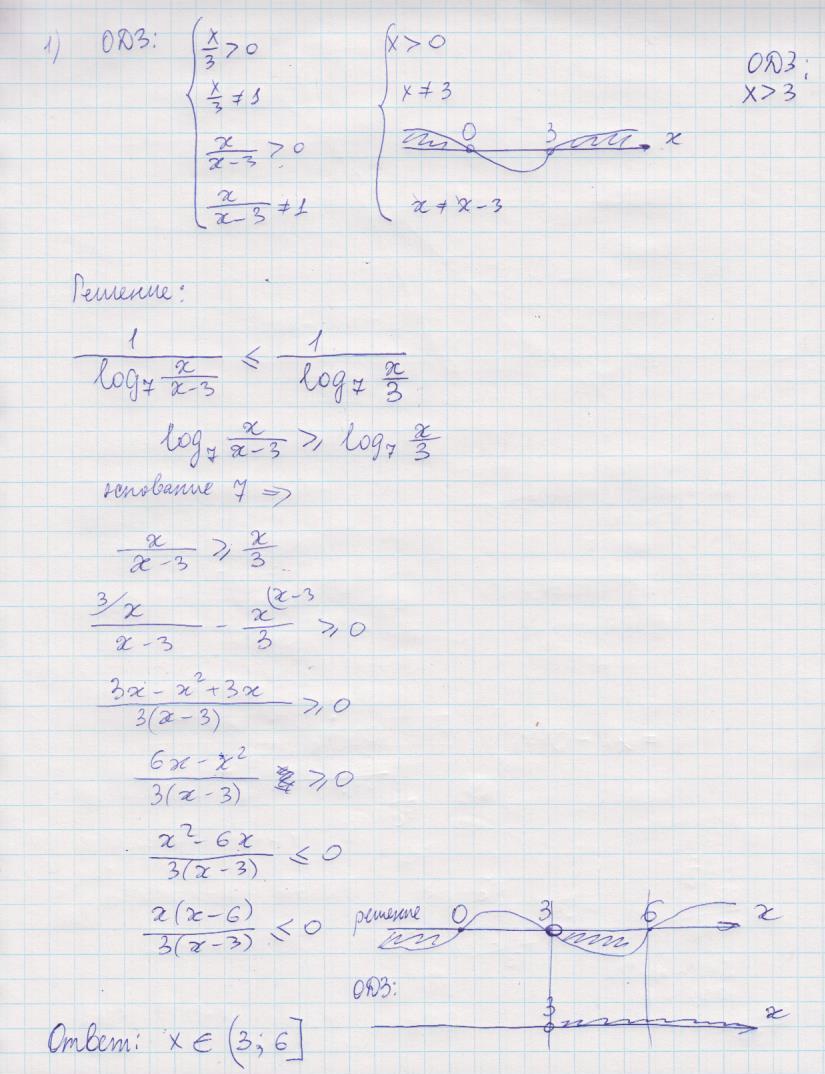 1) ОДЗ:
x/3 > 0
x/3 ≠ 1
x/(x-3) > 0
x/(x-3) ≠ 1
x > 0
x ≠ 3
0 3 x
x ≠ x-3
ОДЗ:
x > 3
Решение:
1/(log₇ x/(x-3)) ≤ 1/(log₇ x/3)
log₇ x/(x-3) ≥ log₇ x/3
основание 7 ⇒
x/(x-3) ≥ x/3
3/ x/(x-3) - x/3 (x-3 ≥ 0
(3x - x² + 3x)/(3(x-3)) ≥ 0
(6x - x²)/(3(x-3)) ≥ 0
(x² - 6x)/(3(x-3)) ≤ 0
x(x-6)/(3(x-3)) ≤ 0
решение 0 3 6 x
ОДЗ:
3 x
Ответ: x ∈ (3; 6]